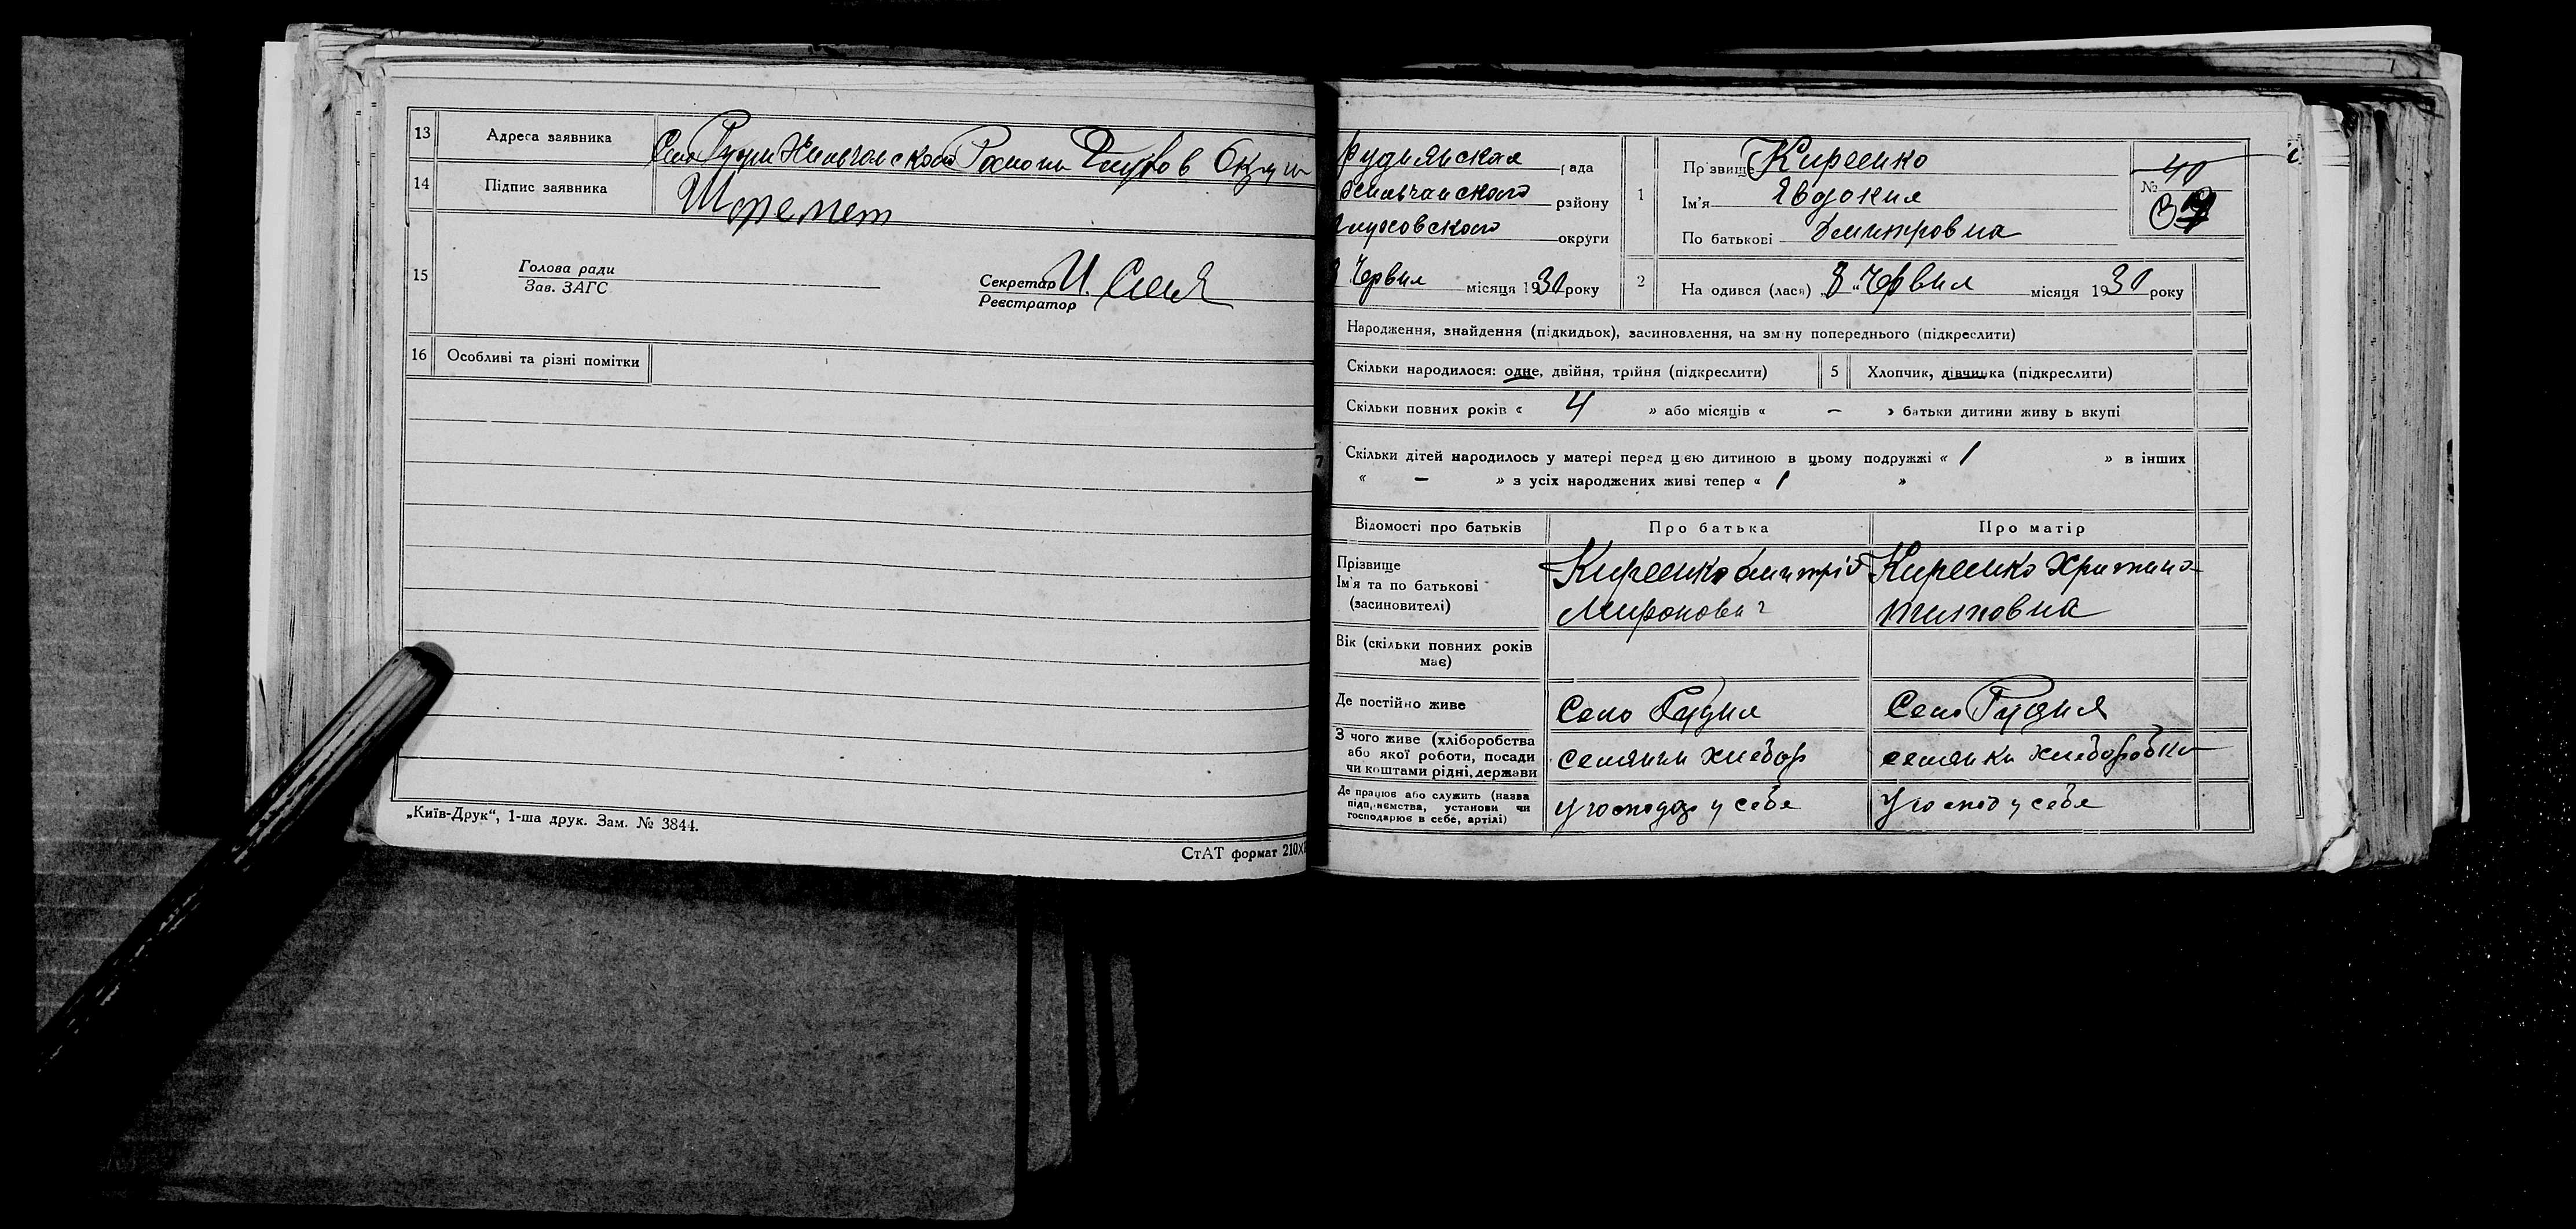 13 Адреса заявника Село Рудни Ямпольского Района Глухов Окру
14 Підпис заявника Шремет
15 Голова ради
Зав. ЗАГС
Секретар И.
Реєстратор
16 Особливі та різні помітки
„Київ-Друк“, 1-ша друк. Зам. № 3844.
СтАТ формат 210X
Руднянская рада
району
Глуховского округи
Червня місяця 1930 року
1 Прізвище Киреенко
Ім'я Явдокия
По батькові Дмитровна
№ 40
39
2 На одився (лася) „8“ Червня місяця 1930 року
Народження, знайдення (підкидьок), засиновлення, на зміну попереднього (підкреслити)
Скільки народилося: одне, двійня, трійня (підкреслити) 5 Хлопчик, дівчинка (підкреслити)
Скільки повних років « 4 » або місяців « – » батьки дитини живу ь вкупі
Скільки дітей народилось у матері перед цією дитиною в цьому подружжі « 1 » в інших
« – » з усіх народжених живі тепер « 1 »
Відомості про батьків Про батька Про матір
Прізвище
Ім'я та по батькові
(засиновителі)
Киреенко Дмитрій
Миронович
Киреенко Христина
Титовна
Вік (скільки повних років
має)
Де постійно живе Село Рудня Село Рудня
З чого живе (хліборобства
або якої роботи, посади
чи коштами рідні, держави
селянин хлебор селянка хлеборобка
Де працює або служить (назва
підприємства, установи чи
господарює в себе, артілі)
у господар у себе У господ у себе